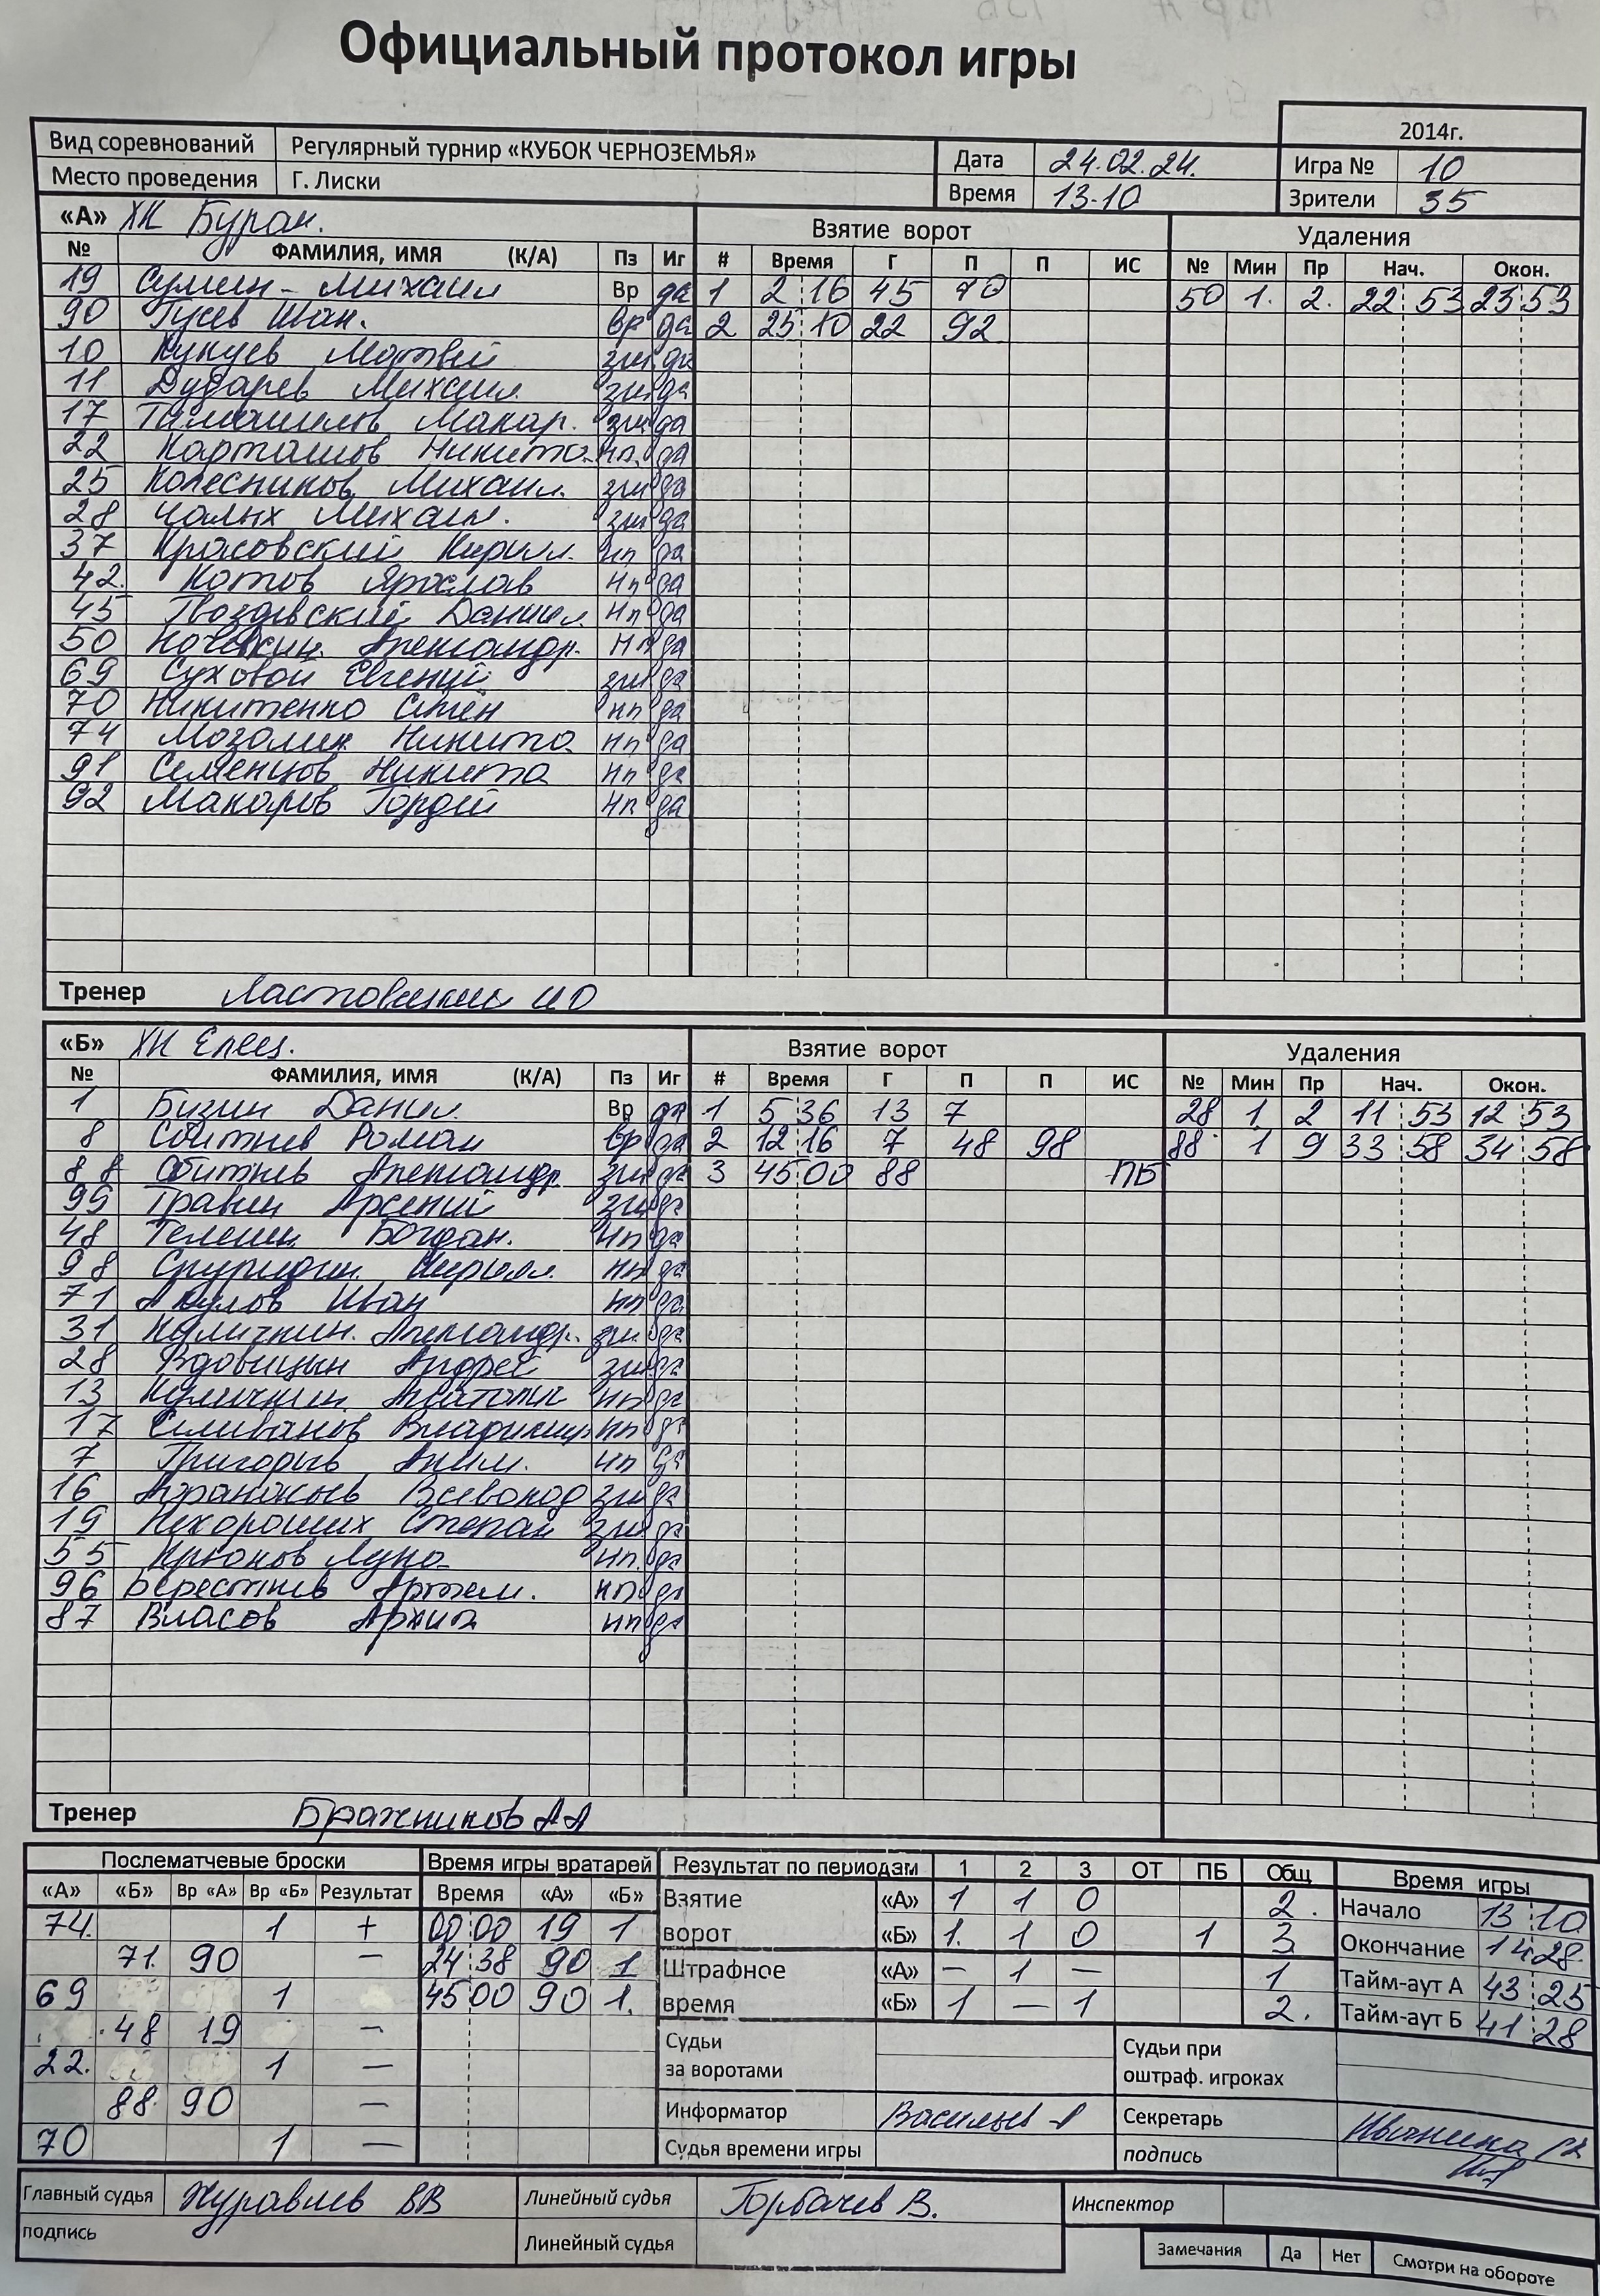 Официальный протокол игры
2014г.
Вид соревнований Регулярный турнир «КУБОК ЧЕРНОЗЕМЬЯ» Дата 24.02.24. Игра № 10
Место проведения Г. Лиски Время 13-10 Зрители 35
«А» ХК Буран. Взятие ворот Удаления
№ ФАМИЛИЯ, ИМЯ (К/А) Пз Иг # Время Г П П ИС № Мин Пр Нач. Окон.
19 Сумин - Михаил Вр да 1 2 16 45 70 50 1. 2. 22 53 23 53
90 Гусев Иван. Вр да 2 25 10 22 92
10 Матвей защ да
11 Дударев Михаил защ да
17 Макар. защ да
22 Карташов Никита нп. да
25 Колесников Михаил. защ да
28 Чалых Михаил. защ да
37 Красовский Кирилл. нп да
42. Котов Ярослав нп да
45 Гвоздевский Даниил нп да
50 Александр. нп да
69 Суховой Евгений защ да
70 Никитенко Семён нп да
74 Мозолин Никита нп да
91 Семенцов Никита нп да
92 Макаров Гордей нп да
Тренер
«Б» ХК Елец. Взятие ворот Удаления
№ ФАМИЛИЯ, ИМЯ (К/А) Пз Иг # Время Г П П ИС № Мин Пр Нач. Окон.
1 Бузин Данил Вр да 1 5 36 13 7 28 1 2 11 53 12 53
8 Сбитнев Роман Вр да 2 12 16 7 48 98 88 1 9 33 58 34 58
88 Сбитнев Александр защ да 3 45 00 88 ПБ
99 Травин Арсений защ да
48 Телешин Богдан. нп да
98 Спуридин Кирилл. нп да
71 Акулов Иван нп да
31 Куличкин. Александр. защ да
28 Вдовицын Андрей защ да
13 Куличкин нп да
17 Селиванов Владимир нп да
7 Григорьев Аким. нп да
16 Всеволод защ да
19 Нехороших Степан защ да
55 Крюков Лука нп. да
96 Берестнев Артем. нп да
87 Власов Архип нп да
Тренер Бражников АА
Послематчевые броски Время игры вратарей Результат по периодам 1 2 3 ОТ ПБ Общ Время игры
«А» «Б» Вр «А» Вр «Б» Результат Время «А» «Б» Взятие «А» 1 1 0 2. Начало 13 10
74. 1 + 00 00 19 1 ворот «Б» 1. 1 0 1 3 Окончание 14 28.
71. 90 — 24 38 90 1 Штрафное «А» — 1 — 1 Тайм-аут А 43 25
69 1 45 00 90 1. время «Б» 1 — 1 2. Тайм-аут Б 41 28
48 19 — Судьи за воротами Судьи при оштраф. игроках
22. 1 —
88. 90 — Информатор Васильев Секретарь
70 1 — Судья времени игры подпись
Главный судья Журавлев ВВ Линейный судья Горбачев В. Инспектор
подпись Линейный судья Замечания Да Нет Смотри на обороте